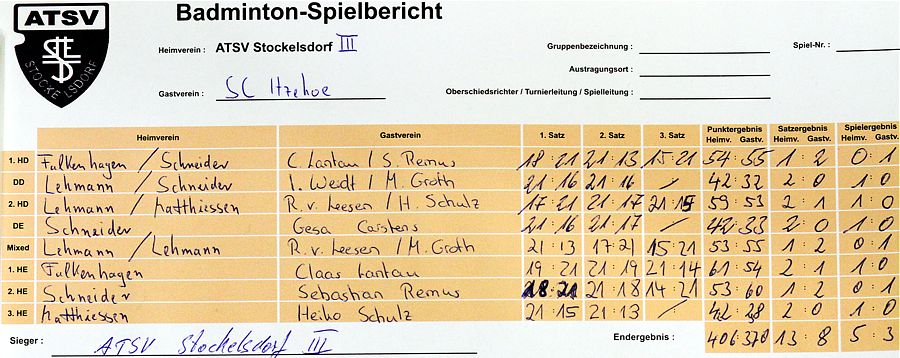 ATSV
StE
STOCKELSDORF
Badminton-Spielbericht
Heimverein : ATSV Stockelsdorf III
Gruppenbezeichnung :
Spiel-Nr. :
Austragungsort :
Gastverein : SC Itzehoe
Oberschiedsrichter / Turnierleitung / Spielleitung :
Heimverein Gastverein 1. Satz 2. Satz 3. Satz Punktergebnis Heimv. Gastv. Satzergebnis Heimv. Gastv. Spielergebnis Heimv. Gastv.
1. HD Falkenhagen / Schneider C. Lantau / S. Remus 18 : 21 21 : 13 15 : 21 54 : 55 1 : 2 0 : 1
DD Lehmann / Schneider I. Weidt / M. Groth 21 : 16 21 : 16 / 42 : 32 2 : 0 1 : 0
2. HD Lehmann / Matthiessen R. v. Leesen / H. Schulz 17 : 21 21 : 17 21 : 15 59 : 53 2 : 1 1 : 0
DE Schneider Gesa Carstens 21 : 16 21 : 17 / 42 : 33 2 : 0 1 : 0
Mixed Lehmann / Lehmann R. v. Leesen / M. Groth 21 : 13 17 : 21 15 : 21 53 : 55 1 : 2 0 : 1
1. HE Falkenhagen Claas Lantau 19 : 21 21 : 19 21 : 14 61 : 54 2 : 1 1 : 0
2. HE Schneider Sebastian Remus 18 : 21 21 : 18 14 : 21 53 : 60 1 : 2 0 : 1
3. HE Matthiessen Heiko Schulz 21 : 15 21 : 13 / 42 : 28 2 : 0 1 : 0
Sieger : ATSV Stockelsdorf III Endergebnis : 406 : 370 13 : 8 5 : 3